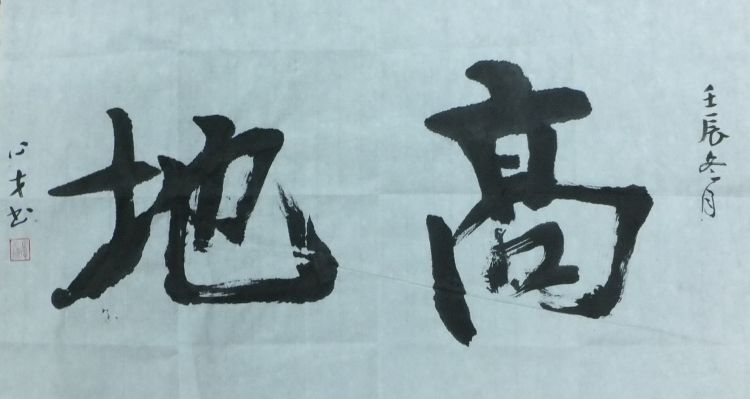 壬辰冬月
高地
心才书